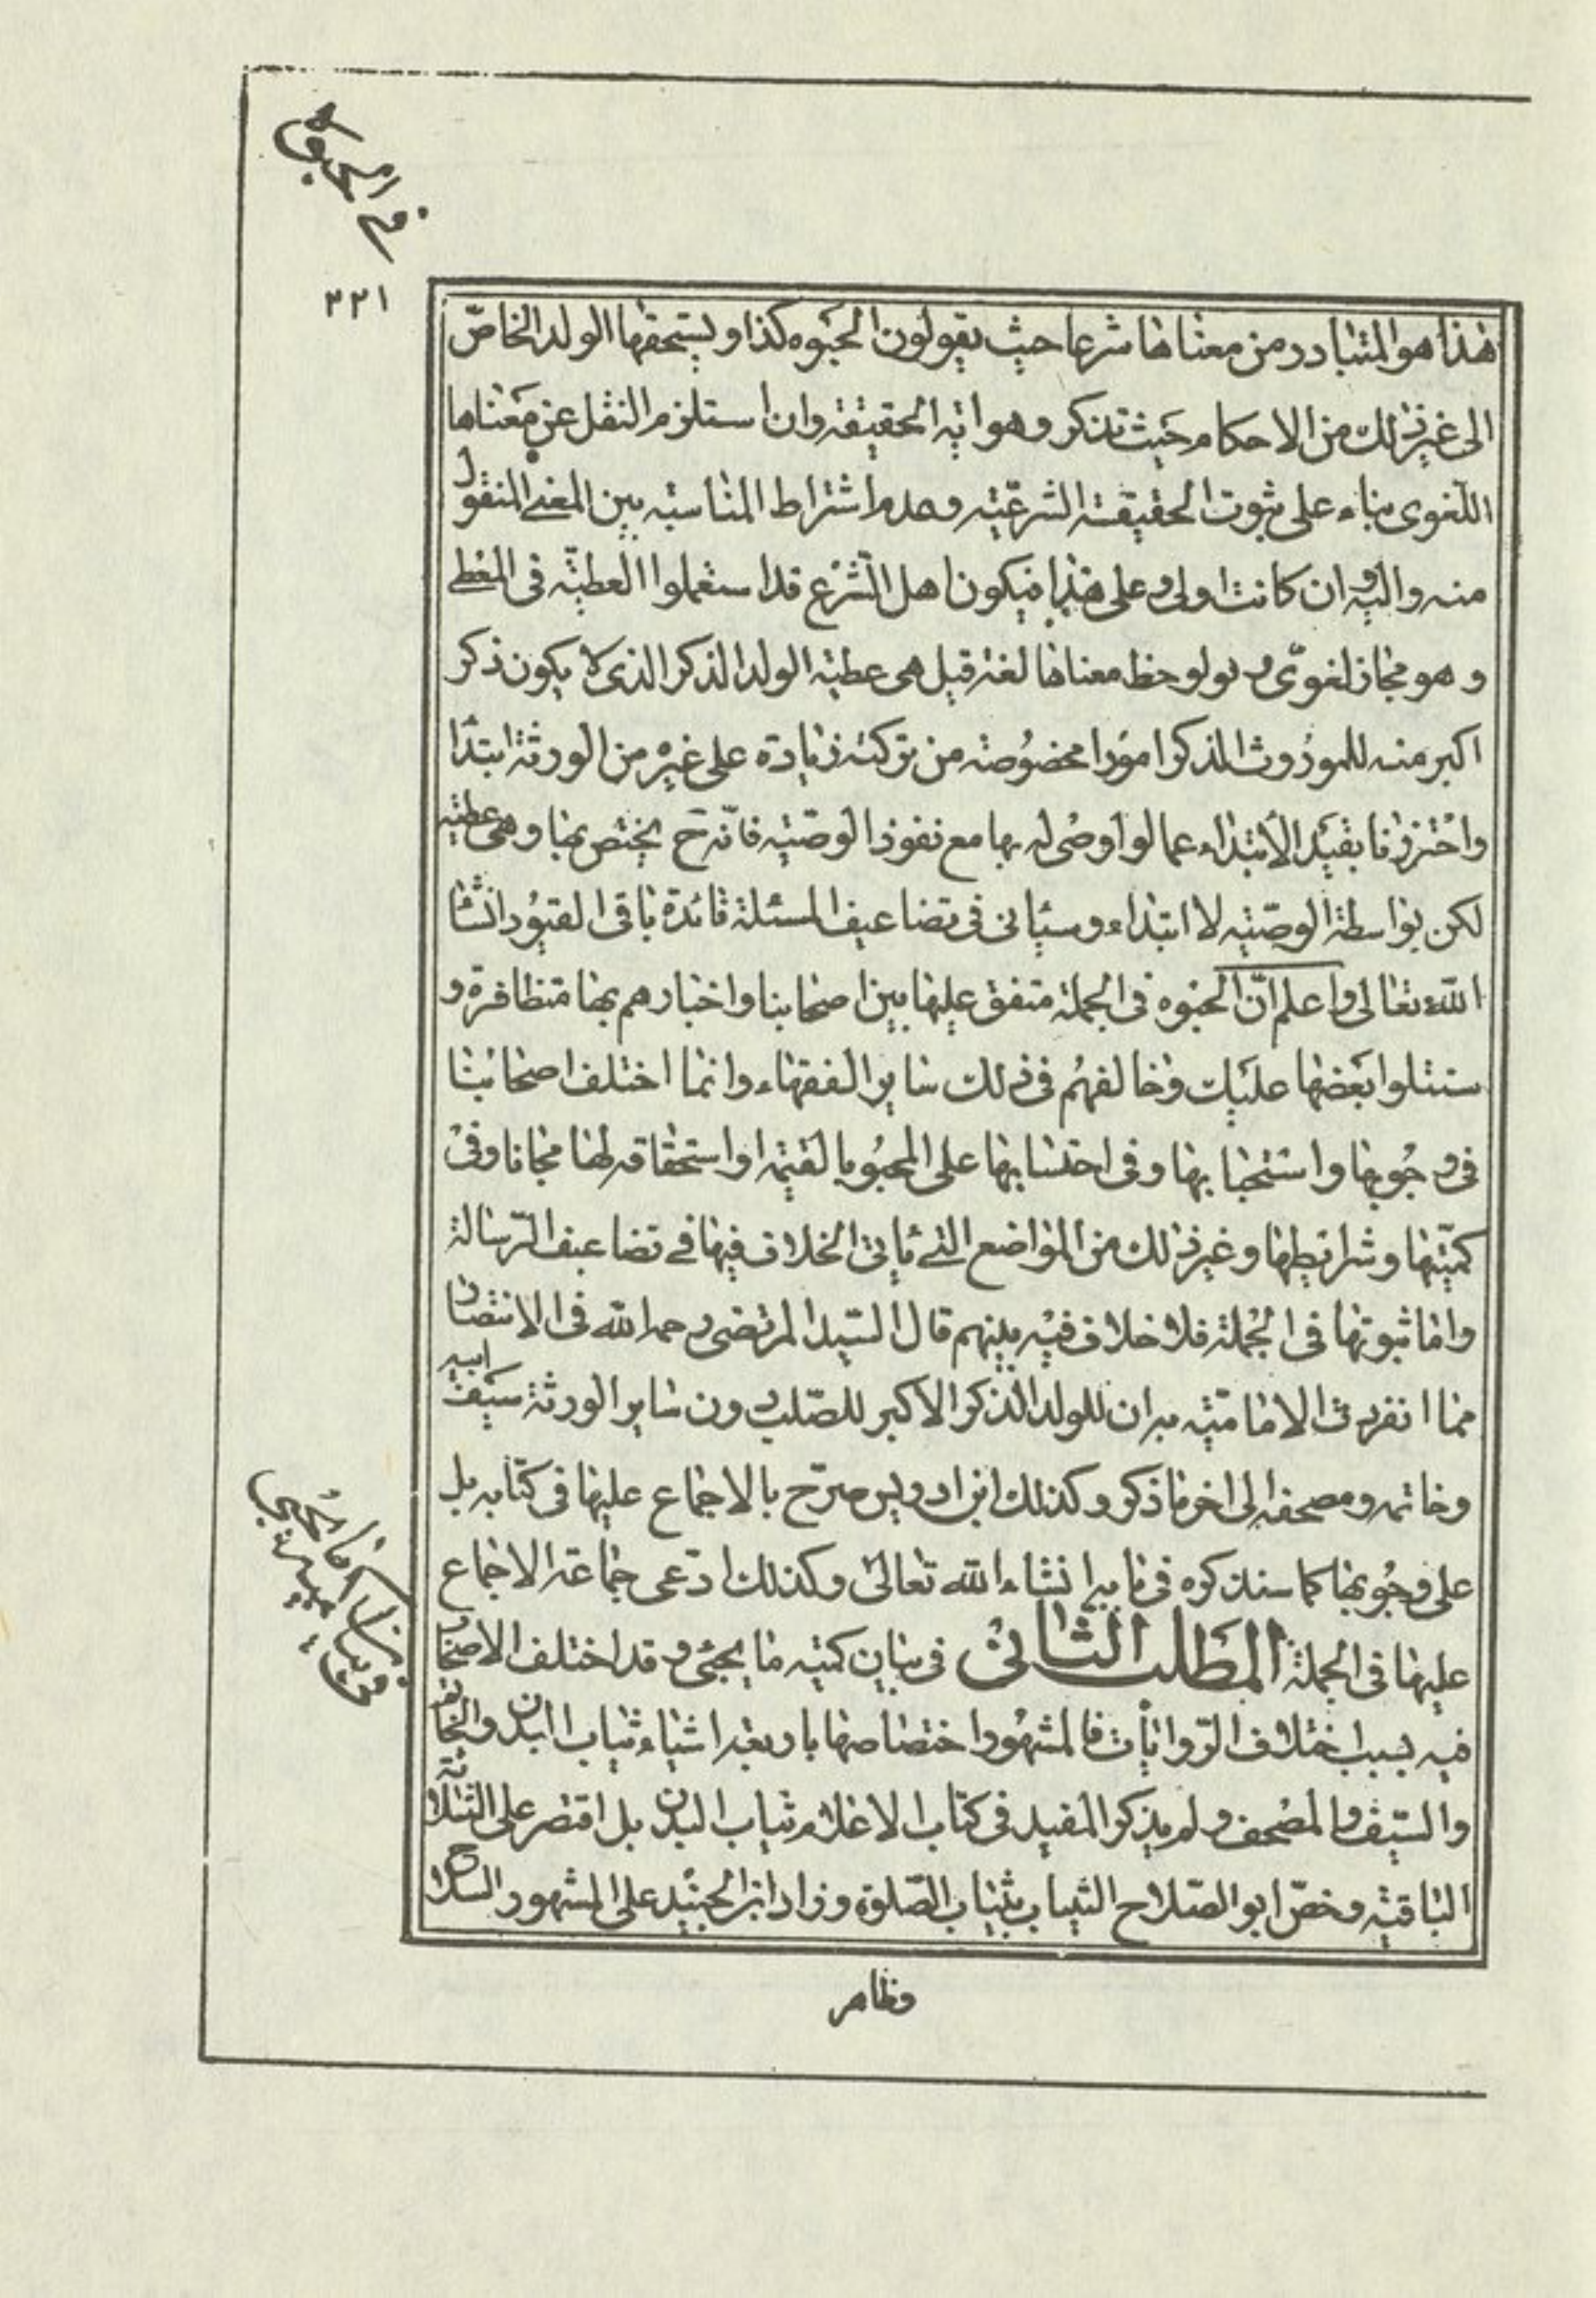 في الحبوة
٢٢١
هذا هو المتبادر من معناها شرعا حيث يقولون الحبوه كذا ويستحقها الولد الخاصّ
الى غير ذلك من الاحكام حيث تذكر وهو اية الحقيقة وان استلزم النقل عن معناها
اللّغوى بناء على ثبوت الحقيقة الشرعيّة وعدم اشتراط المناسبة بين المعنى المنقول
منه واليه وان كانت اولى وعلى هذا فيكون اهل الشّرع قد استعملوا العطيّة فى المعطى
وهو مجاز لغوىّ ولو لوحظ معناها لغة قيل هى عطية الولد الذكر الذى لا يكون ذكر
اكبر منه للموروث المذكر امورا مخصوصة من تركته زيادة على غيره من الورثة ابتداء
واحترزنا بقيد الابتداء عما لو اوصى له بها مع نفوذ الوصّية فانّه ح يختص بها وهى عطية
لكن بواسطة الوصّية لا ابتداء وسيأتى فى تضاعيف المسئلة فائدة باقى القيود انشاء
اللّه تعالى واعلم انّ الحبوه فى الجملة متفق عليها بين اصحابنا واخبارهم بها متظافرة و
سنتلوا بعضها عليك وخالفهم فى ذلك سائر الفقهاء وانما اختلف اصحابنا
فى وجوبها واستحبابها وفى احتسابها على المحبو بالقيمة او استحقاقه لها مجانا وفى
كميّتها وشرائطها وغير ذلك من المواضع التى يأتى الخلاف فيها فى تضاعيف الرّسالة
وامّا ثبوتها فى الجملة فلا خلاف فيه بينهم قال السّيد المرتضى رحمه اللّه فى الانتصار
مما انفردت الاماميّة به ان للولد الذكر الاكبر للصّلب دون سائر الورثة سيف ابيه
وخاتمه ومصحفه الى اخر ما ذكر وكذلك ابن ادريس صرّح بالاجماع عليها فى كتابه بل
على وجوبها كما سنذكره فى بابه انشاء اللّه تعالى وكذلك ادّعى جماعة الاجماع
عليها فى الجملة المطلب الثانى فى بيان كمية ما يحبى وقد اختلف الاصحاب
فيه بسبب اختلاف الرّوايات فالمشهور اختصاصها باربعة اشياء ثياب البدن والخاتم
والسّيف والمصحف ولم يذكر المفيد فى كتاب الاعلام ثياب البدن بل اقتصر على الثلاثة
الباقية وخصّ ابو الصّلاح الثياب بثياب الصّلوة وزاد ابن الجنيد على المشهور السّلاح
وظاهر